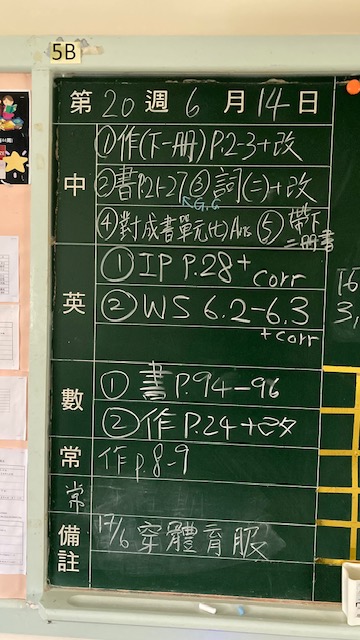 5B
第20週6月14日
中
①作(下一册)P.2-3+改
②書P.21-27 ③詞(二)+改
G.C
④對成書單元(七)Ans ⑤帶下二冊書
英
①IP P.28+corr
②WS 6.2-6.3
+corr
數
①書P.94-96
②作P.24+改
常 作p.8-9
常
備註 17/6穿體育服